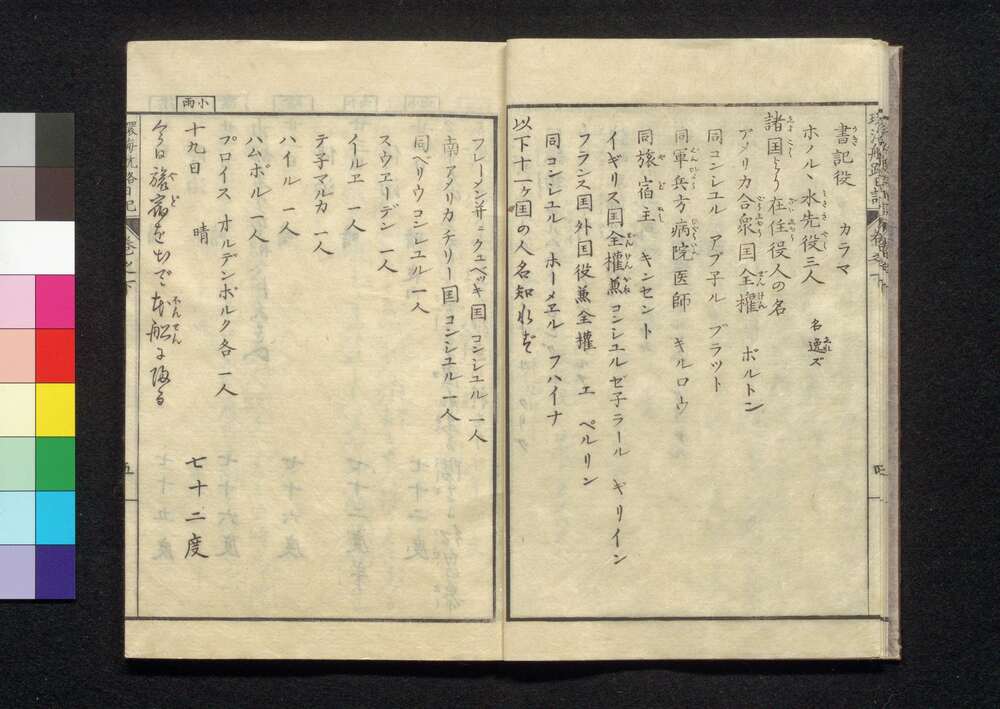 書記役 カラマ
ホノルヽ水先役三人 名逸ズ
諸国より在住役人の名
アメリカ合衆国全権 ボルトン
同コンシユル アプ子ル ブラット
同軍兵方病院医師 キルロウ
同旅宿主 キンセント
イギリス国全権兼コンシユルゼ子ラール ギリイン
フランス国外国役兼全権 エ ペルリン
同コンシユル ホーメエル フハイナ
以下十一ヶ国の人名知れず
フレーメン并ニクュベッキ国コンシユル一人
南アメリカチリー国コンシユル一人
同ペリウコンシユル一人
スウエーデン 一人
イルエ 一人
テ子マルカ 一人
ハイル 一人
ハムボル 一人
プロイス オルデンボルク各一人
小雨
十九日 晴 七十二度
今日旅宿を出で本船に帰る
五